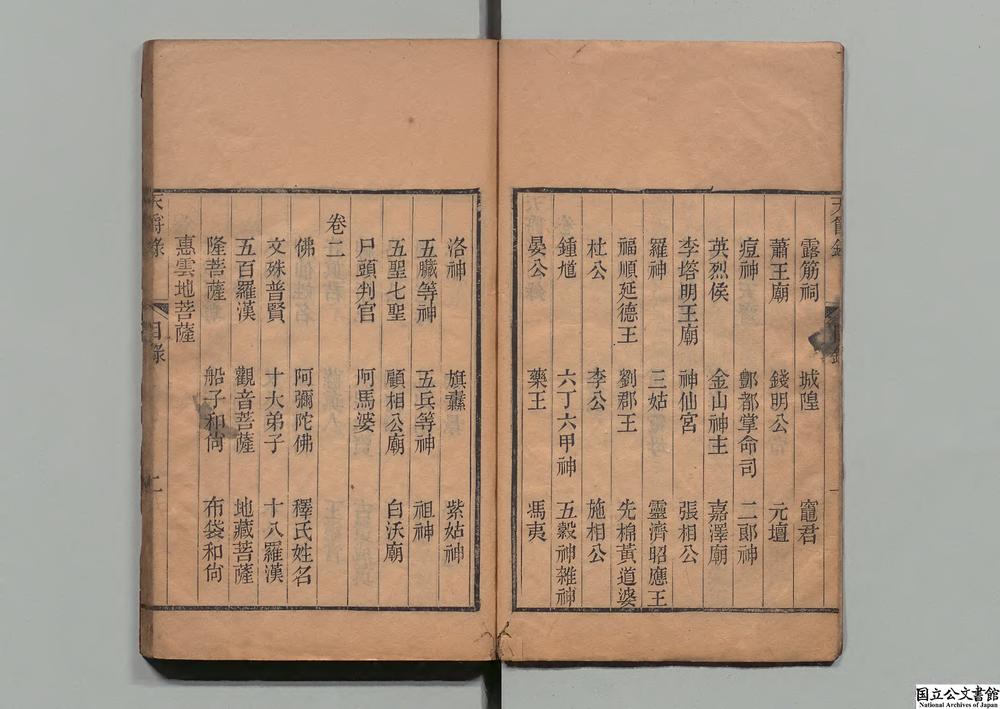 露筋祠 城隍 竈君
蕭王廟 錢明公 元壇
痘神 酆都掌命司 二郎神
英烈侯 金山神主 嘉澤廟
李塔明王廟 神仙宮 張相公
羅神 三姑 靈濟昭應王
福順延德王 劉郡王 先棉黃道婆
杜公 李公 施相公
鍾馗 六丁六甲神 五穀神雜神
晏公 藥王 馮夷
洛神 旗纛 紫姑神
五臟等神 五兵等神 祖神
五聖七聖 顧相公廟 白沃廟
尸頭判官 阿馬婆
卷二
佛 阿彌陀佛 釋氏姓名
文殊普賢 十大弟子 十八羅漢
五百羅漢 觀音菩薩 地藏菩薩
隆菩薩 船子和尙 布袋和尙
惠雲地菩薩
天爵錄 目錄 二
国立公文書館
National Archives of Japan